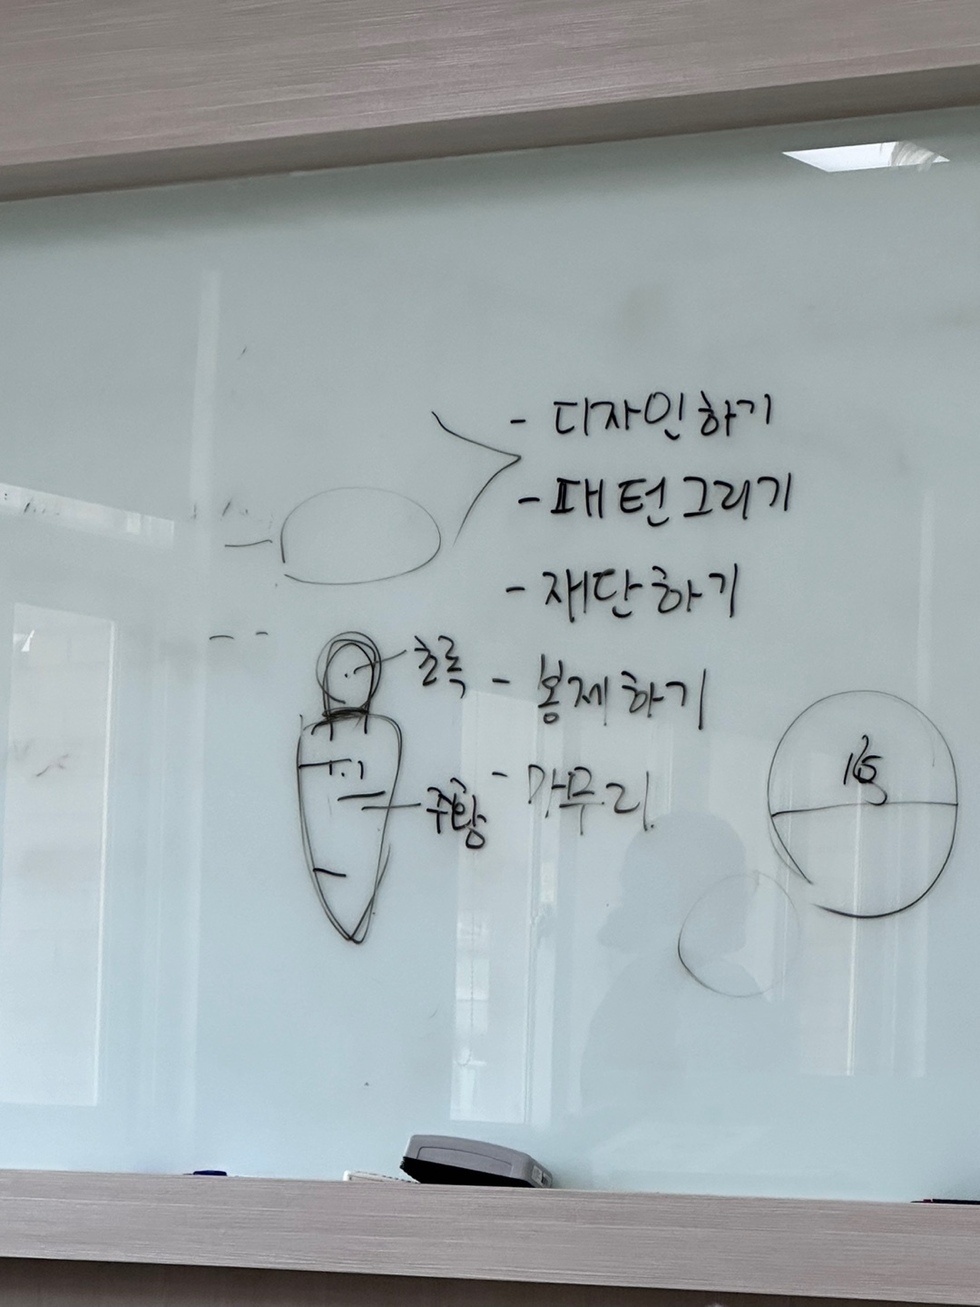 - 디자인하기
- 패턴그리기
- 재단하기
초록
- 봉제하기
- 마무리
주황